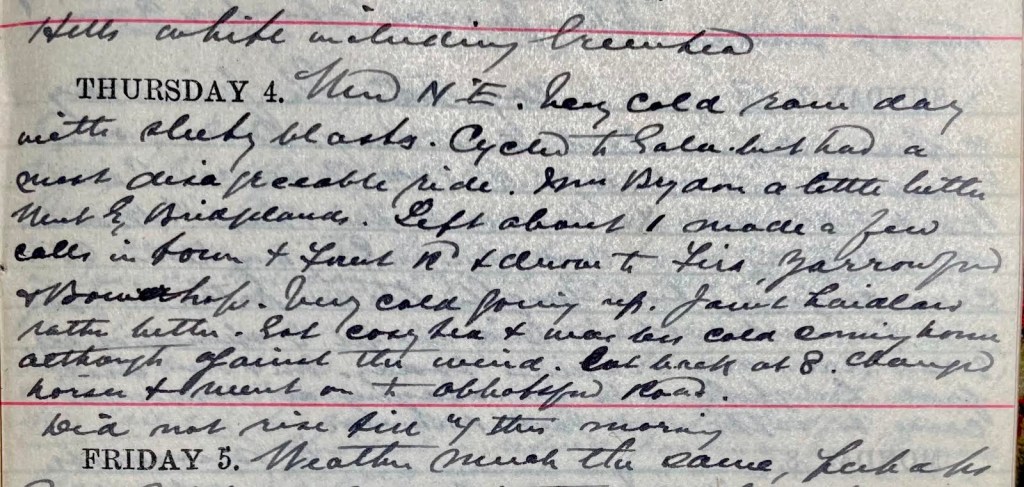 Hills white including Greenhead
THURSDAY 4. Wind N.E. Very cold raw day
with sleety blasts. Cycled to Gala but had a
most disagreeable ride. Mrs Brydon a little better
Went to Bridgelands. Left about 1 made a few
calls in town & Forest Rd & drove to Firs, Yarrowford
& Bowerhope. Very cold going up. Janet Laidlaw
rather better. Got cosy tea & was less cold coming home
although against the wind. Got back at 8. Changed
horses & went on to Abbotsford Road.
Did not rise till this morning
FRIDAY 5. Weather much the same, perhaps